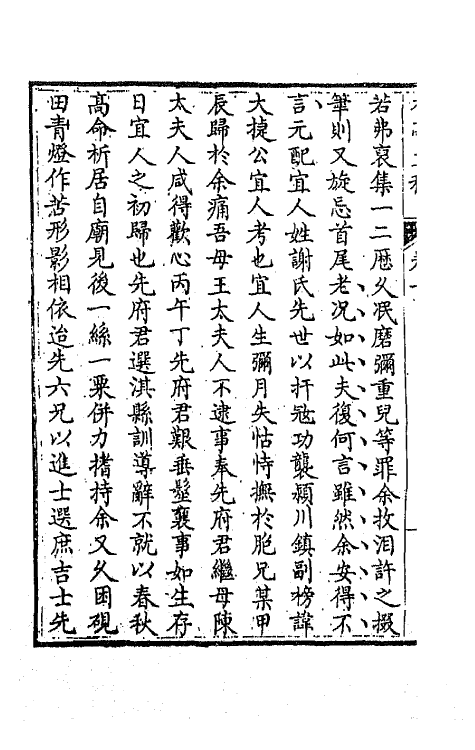 若弗裒集一二歷久泯磨彌重兒等罪余抆泪許之掇
筆則又旋忘首尾老况如此夫復何言雖然余安得不
言元配宜人姓謝氏先世以扞冦功襲穎川鎮副榜諱
大捷公宜人考也宜人生彌月失怙恃撫於胞兄某甲
辰歸於余痛吾母王太夫人不逮事奉先府君繼母陳
太夫人咸得歡心丙午丁先府君艱垂髽襄事如生存
日宜人之初歸也先府君選淇縣訓導辭不就以春秋
髙命析居自廟見後一絲一粟併力搘持余又久困硯
田青燈作苦形影相依迨先六兄以進士選庶吉士先